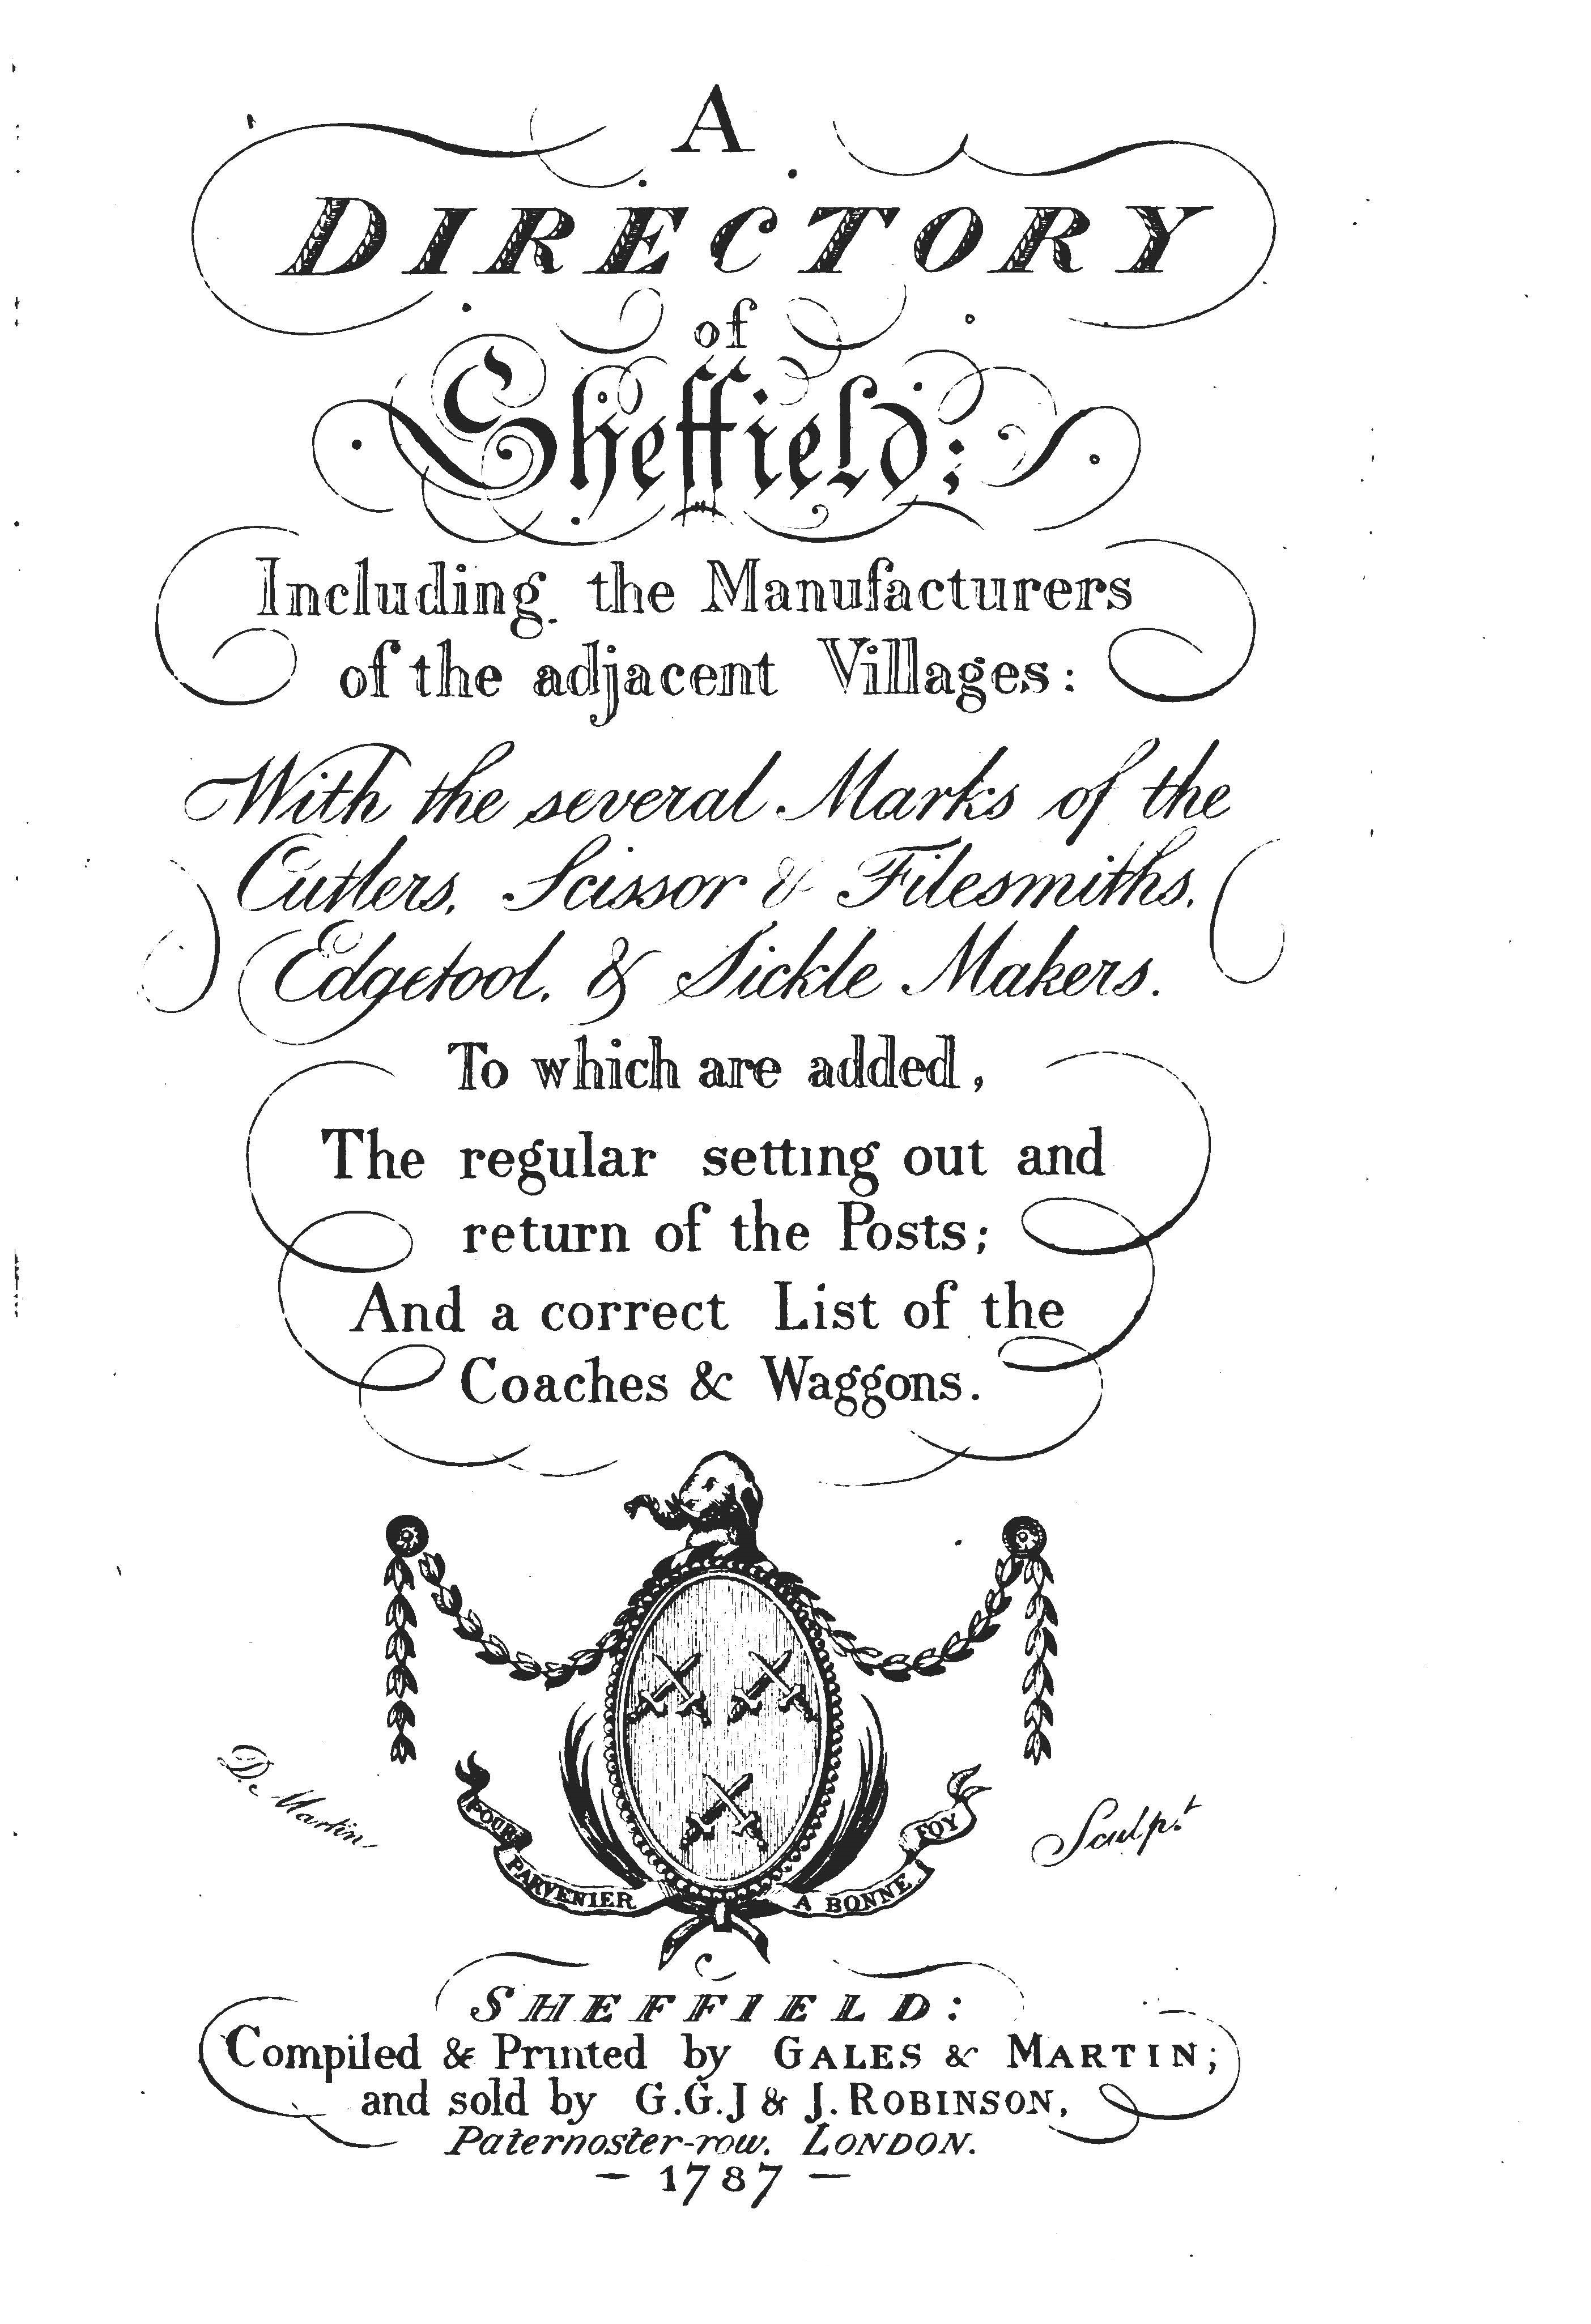 A
DIRECTORY
of
Sheffield;
Including the Manufacturers
of the adjacent Villages:
With the several Marks of the
Cutlers, Scissor & Filesmiths,
Edgetool, & Sickle Makers.
To which are added,
The regular setting out and
return of the Posts;
And a correct List of the
Coaches & Waggons.
D. Martin
Sculpt.
POUR PARVENIER A BONNE FOY
SHEFFIELD:
Compiled & Printed by GALES & MARTIN;
and sold by G.G.J & J. ROBINSON,
Paternoster-row, LONDON.
– 1787 –